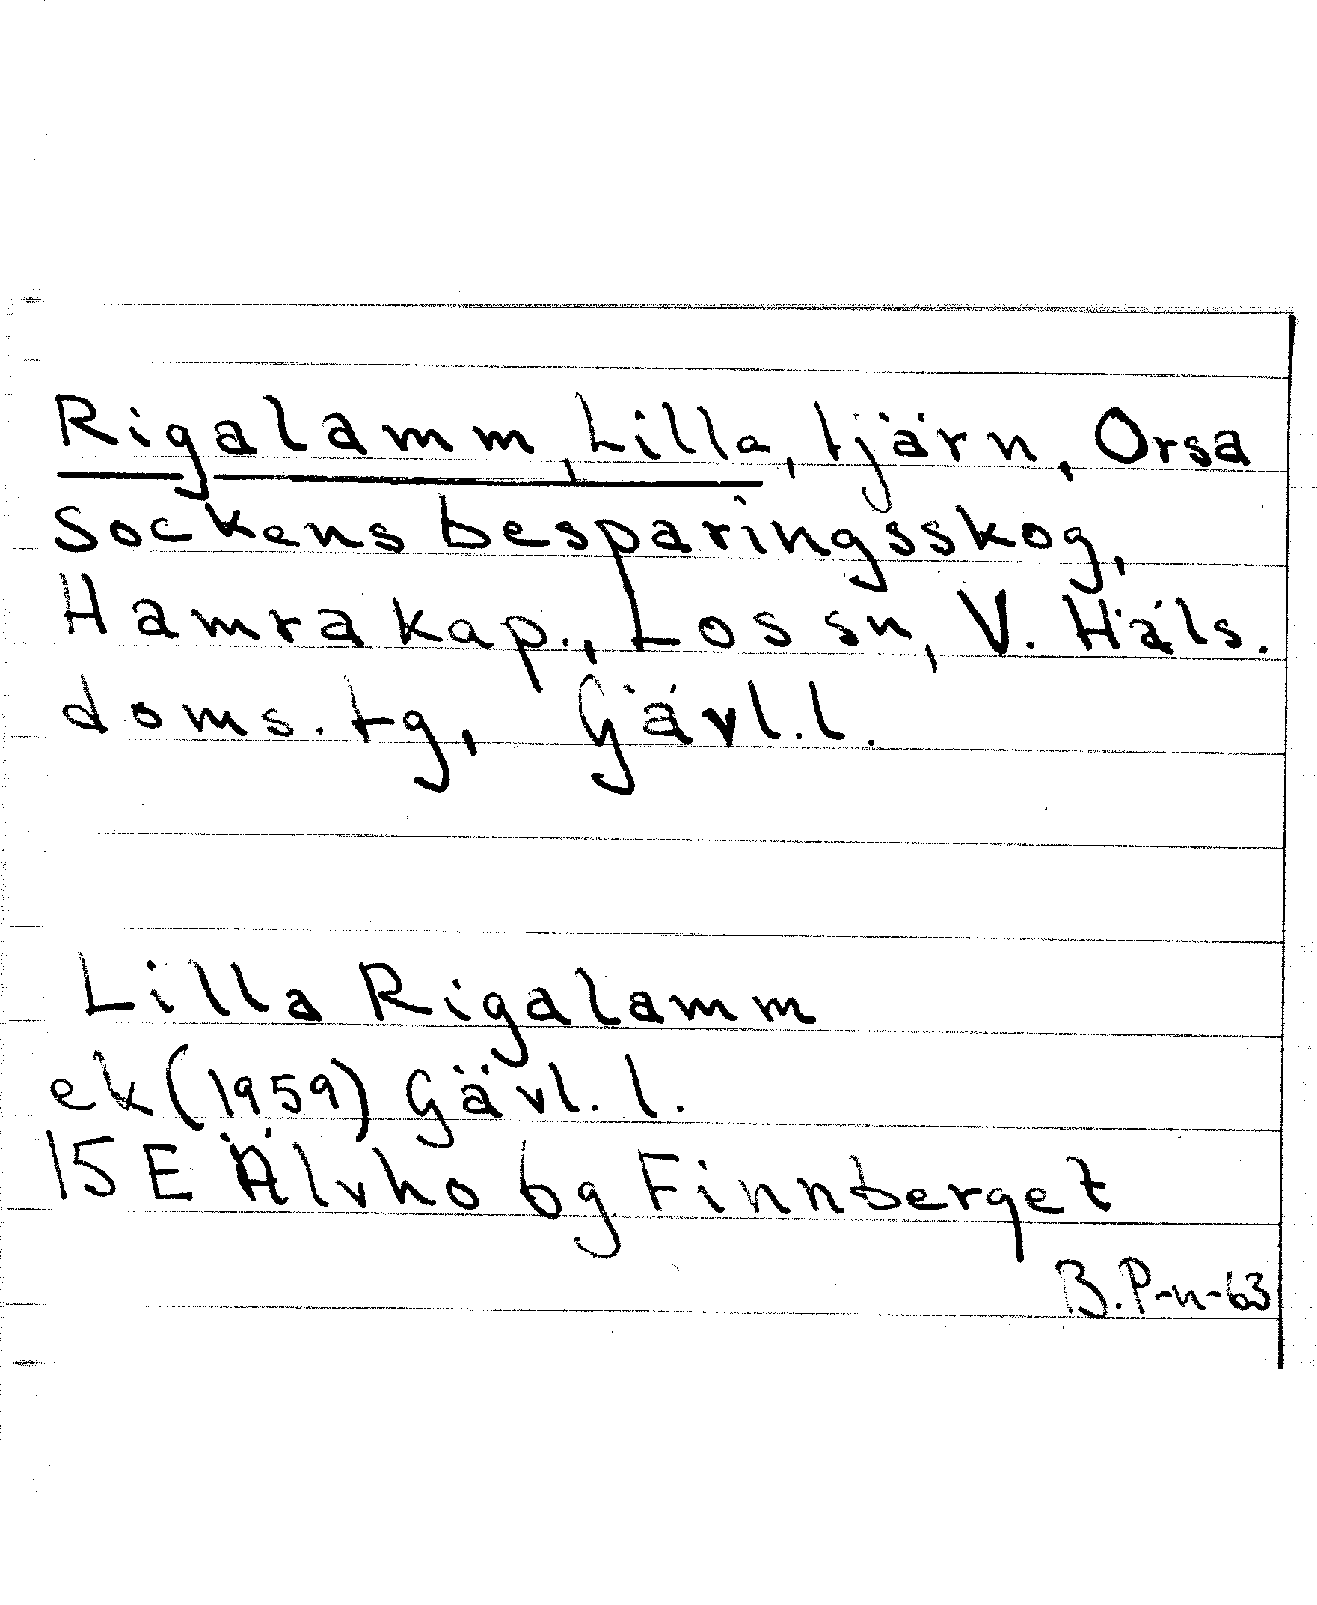 Rigalamm, Lilla, tjärn, Orsa
Sockens besparingsskog,
Hamra kap., Los sn, V. Häls.
doms.tg, Gävl.l.
Lilla Rigalamm
ek (1959) Gävl. l.
15 E Älvho bg Finnberget
B.P-n-63